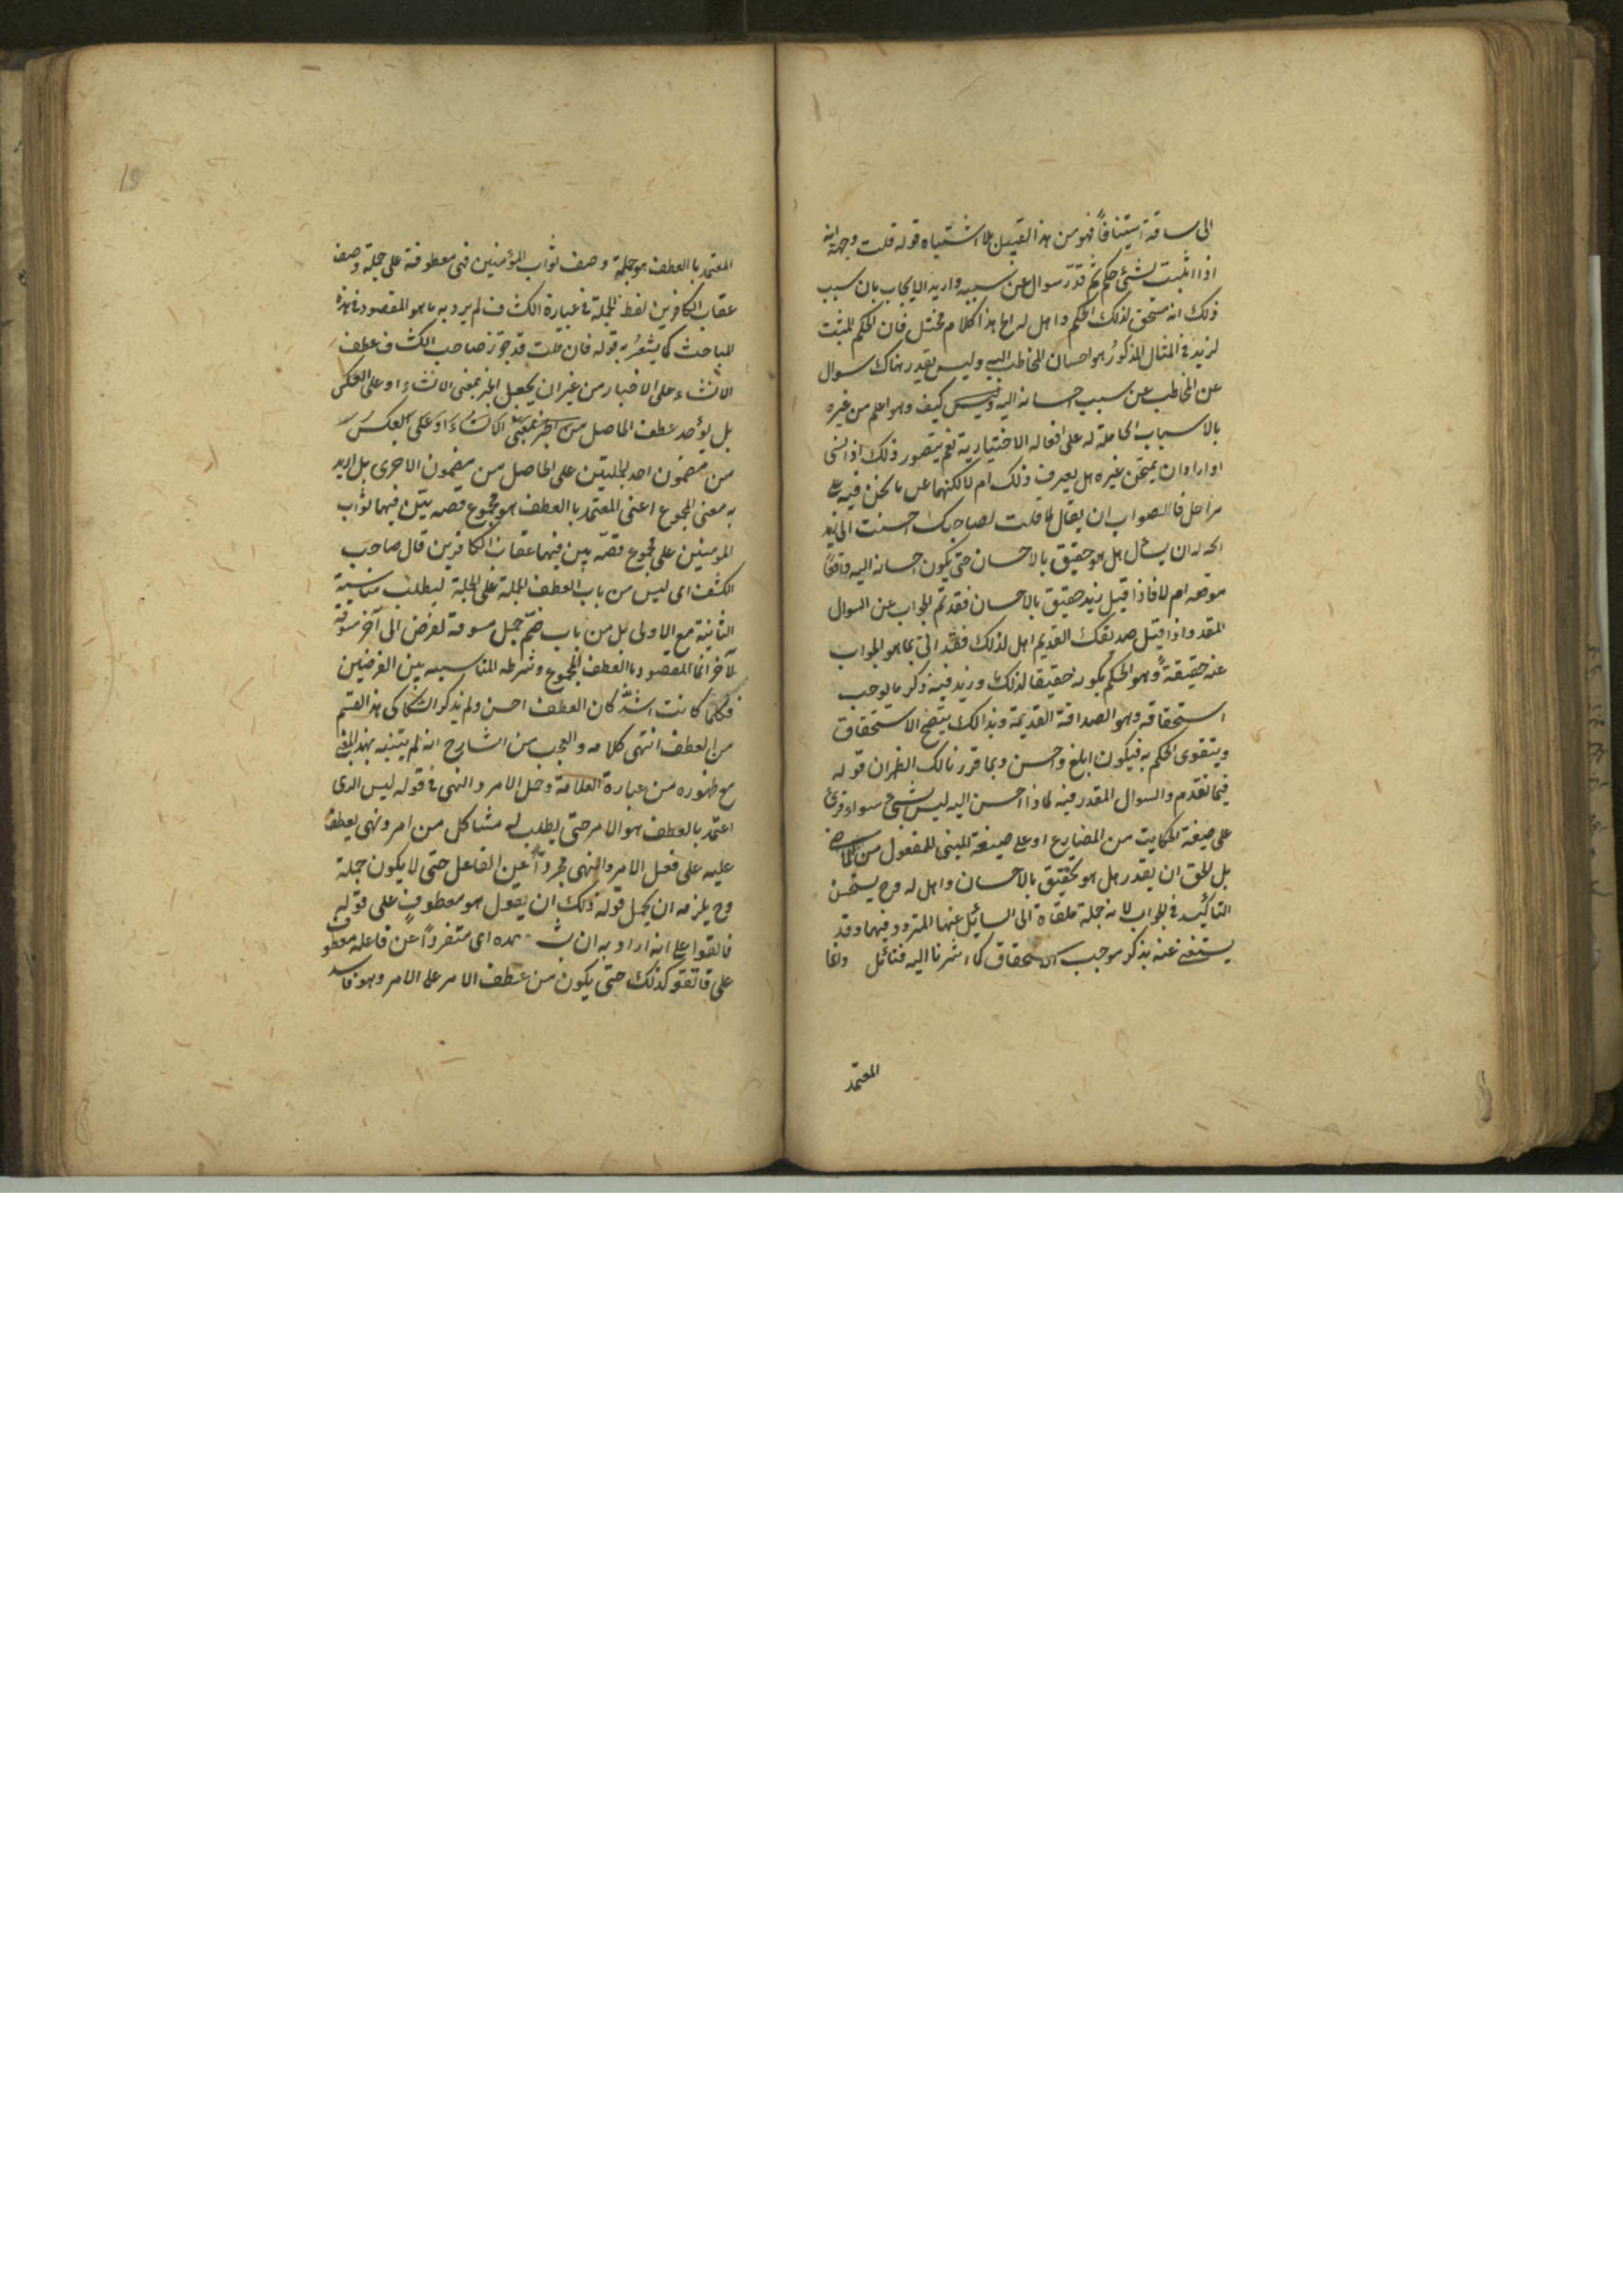 الى ساقته استينافاً فهو من هذا القبيل بلا اشتباه قوله قلت وجهه انه
اذا اثبت لشئ حكم ثم قدّر سوال عن سببه واريد الايجاب بان سبب
ذلك انه مستحق لذلك الحكم واهل له الخ هذا كلام مختل فان الحكم المثبت
لزيد في المثال المذكور هو احسان المخاطب اليه وليس يقدر هناك سوال
عن المخاطب عن سبب احسانه اليه كيف وهو اعلم من غيره
بالاسباب الحاملة له على افعاله الاختيارية نعم يتصور ذلك اذا نسى
او اراد ان يمتحن غيره هل يعرف ذلك ام لا لكنهما عن ما نحن فيه على
مراحل فالصواب ان يقال لما قلت لصاحبك احسنت الى زيد
اتجه له ان يسأل هل هو حقيق بالاحسان حتى يكون احسانه اليه واقعا
موقعه ام لا فاذا قيل زيد حقيق بالاحسان فقد تم الجواب عن السوال
المقدر واذا قيل صديقك القديم اهل لذلك فقد اتى بما هو الجواب
عنه حقيقةً وهو الحكم بكونه حقيقا لذلك وزيد فيه ذكر ما يوجب
استحقاقه وهو الصداقة القديمة وبذالك يتضح الاستحقاق
ويتقوى الحكم به فيكون ابلغ واحسن وبما قررنا لك اظهر ان قوله
فيما تقدم والسوال المقدر فيه لماذا احسن اليه ليس بشئ سواء قرئ
على صيغة الحكاية من المضارع او على صيغة المبنى للمفعول من الماضى
بل الحق ان يقدر هل هو حقيق بالاحسان واهل له وح يستحسن
التأكيد في الجواب لانه جملة ملقاة الى السائل عنها المتردد فيها وقد
يستغنى عنه بذكر موجب الاستحقاق كما اشرنا اليه فتأمل وانما
المعتمد
المعتمد بالعطف هو جملة وصف ثواب المؤمنين فهى معطوفة على جملة وصف
عقاب الكافرين لفظ الجملة في عبارة الكشاف لم يرد به ما هو المقصود في هذه
المباحث كما يشعر به قوله فان قلت قد جوّز صاحب الكشاف عطف
الانشاء على الاخبار من غير ان يجعل الخبر بمعنى الانشاء او على العكس
بل يؤخذ عطف الحاصل من الخبر بمعنى الانشاء او على العكس
من مضمون احد الجملتين على الحاصل من مضمون الاخرى بل اريد
به معنى المجموع اعنى المعتمد بالعطف هو مجموع قصه بيّن فيها ثواب
المومنين على مجموع قصّه بين فيها عقاب الكافرين قال صاحب
الكشف اى ليس من باب العطف الجملة على الجملة ليطلب مناسبة
الثانية مع الاولى بل من باب ضمّ جمل مسوقة لغرض الى آخر مسوقة
لآخر انما المقصود بالعطف المجموع وشرطه المناسبه بين الغرضين
فكلما كانت اشدّ كان العطف احسن ولم يذكر السكاكى هذا القسم
من العطف انتهى كلامه والعجب من الشارح انه لم يتنبه بهذا المعنى
مع ظهوره من عبارة العلامة وحل الامر والنهى في قوله ليس الذى
اعتمد بالعطف هو الامر حتى يطلب له مشاكل من امر ونهى يعطف
عليه على فعل الامر والنهى مجرداً عن الفاعل حتى لا يكون جملة
وح يلزمه ان يحمل قوله ذلك ان يقول هو معطوف على قوله
فاتقوا على انه اراد به ان بشر وحده اى متفرداً عن فاعله معطوف
على فاتقوا كذلك حتى يكون من عطف الامر على الامر وهو فاسد